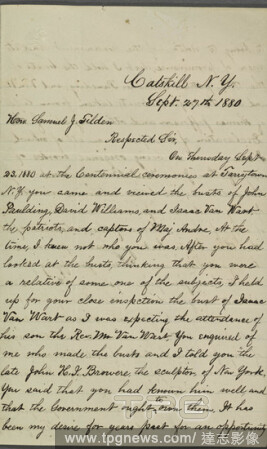 Catskill N.Y.
Sept. 27th 1880
Hon Samuel J. Tilden
Respected Sir,
On Thursday Sept
23. 1880 at the Centennial ceremonies at Tarrytown
N.Y. you came and viewed the busts of John
Paulding, David Williams, and Isaac Van Wart
the patriots, and captors of Maj Andre, At the
time, I knew not who you was. After you had
looked at the busts, thinking that you were
a relative of some one of the subjects, I held
up for your close inspection the bust of Isaac
Van Wart as I was expecting the attendance of
his son the Rev. Mr. Van Wart. You enquired of
me who made the busts and I told you the
late John H. I. Browere the sculptor of New York.
You said that you had known him well and
that the Government ought to own them. It has
been my desire for years past for an opportunity
TPG
www.tpgnews.com / 達志影像